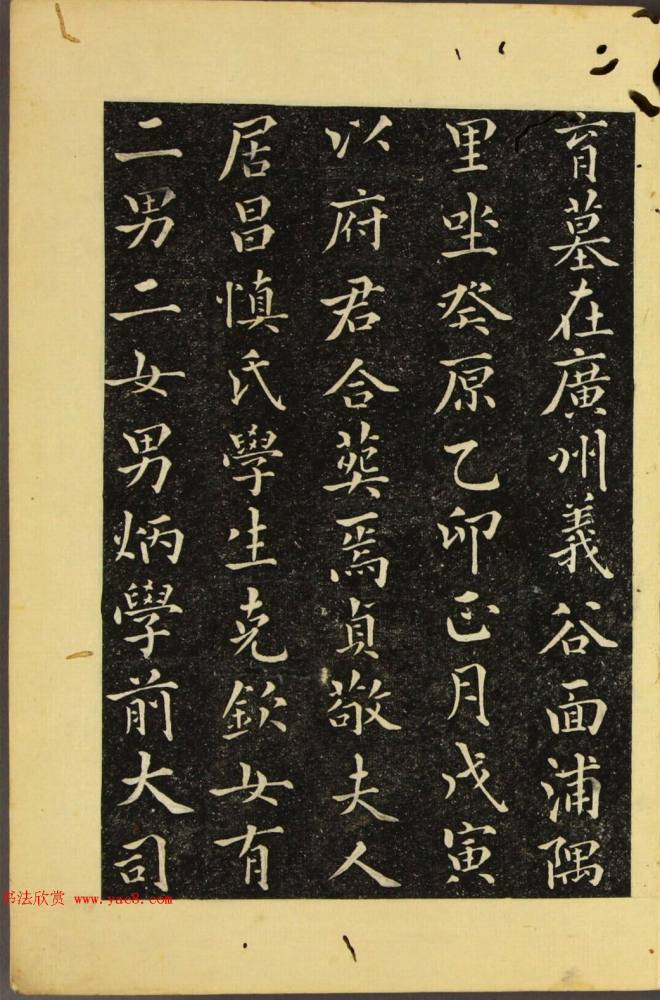 育墓在廣州義谷面浦隅
里坐癸原乙卯正月戊寅
以府君合葬焉貞敬夫人
居昌慎氏學生克欽女有
二男二女男炳學前大司
书法欣赏 www.yac8.com